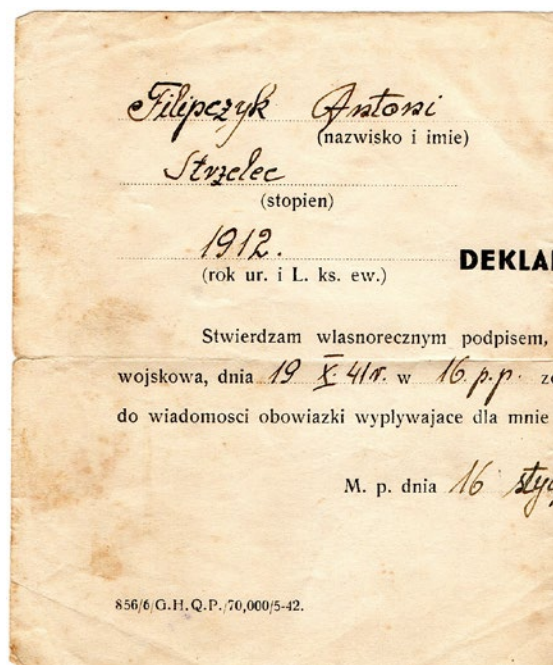 Filipczyk Antoni
(nazwisko i imie)
Strzelec
(stopien)
1912.
(rok ur. i L. ks. ew.)
DEKLA
Stwierdzam wlasnorecznym podpisem,
wojskowa, dnia 19 X 41r. w 16.p.p. z
do wiadomosci obowiazki wyplywajace dla mnie
M. p. dnia 16 sty
856/6/G.H.Q.P./70,000/5-42.